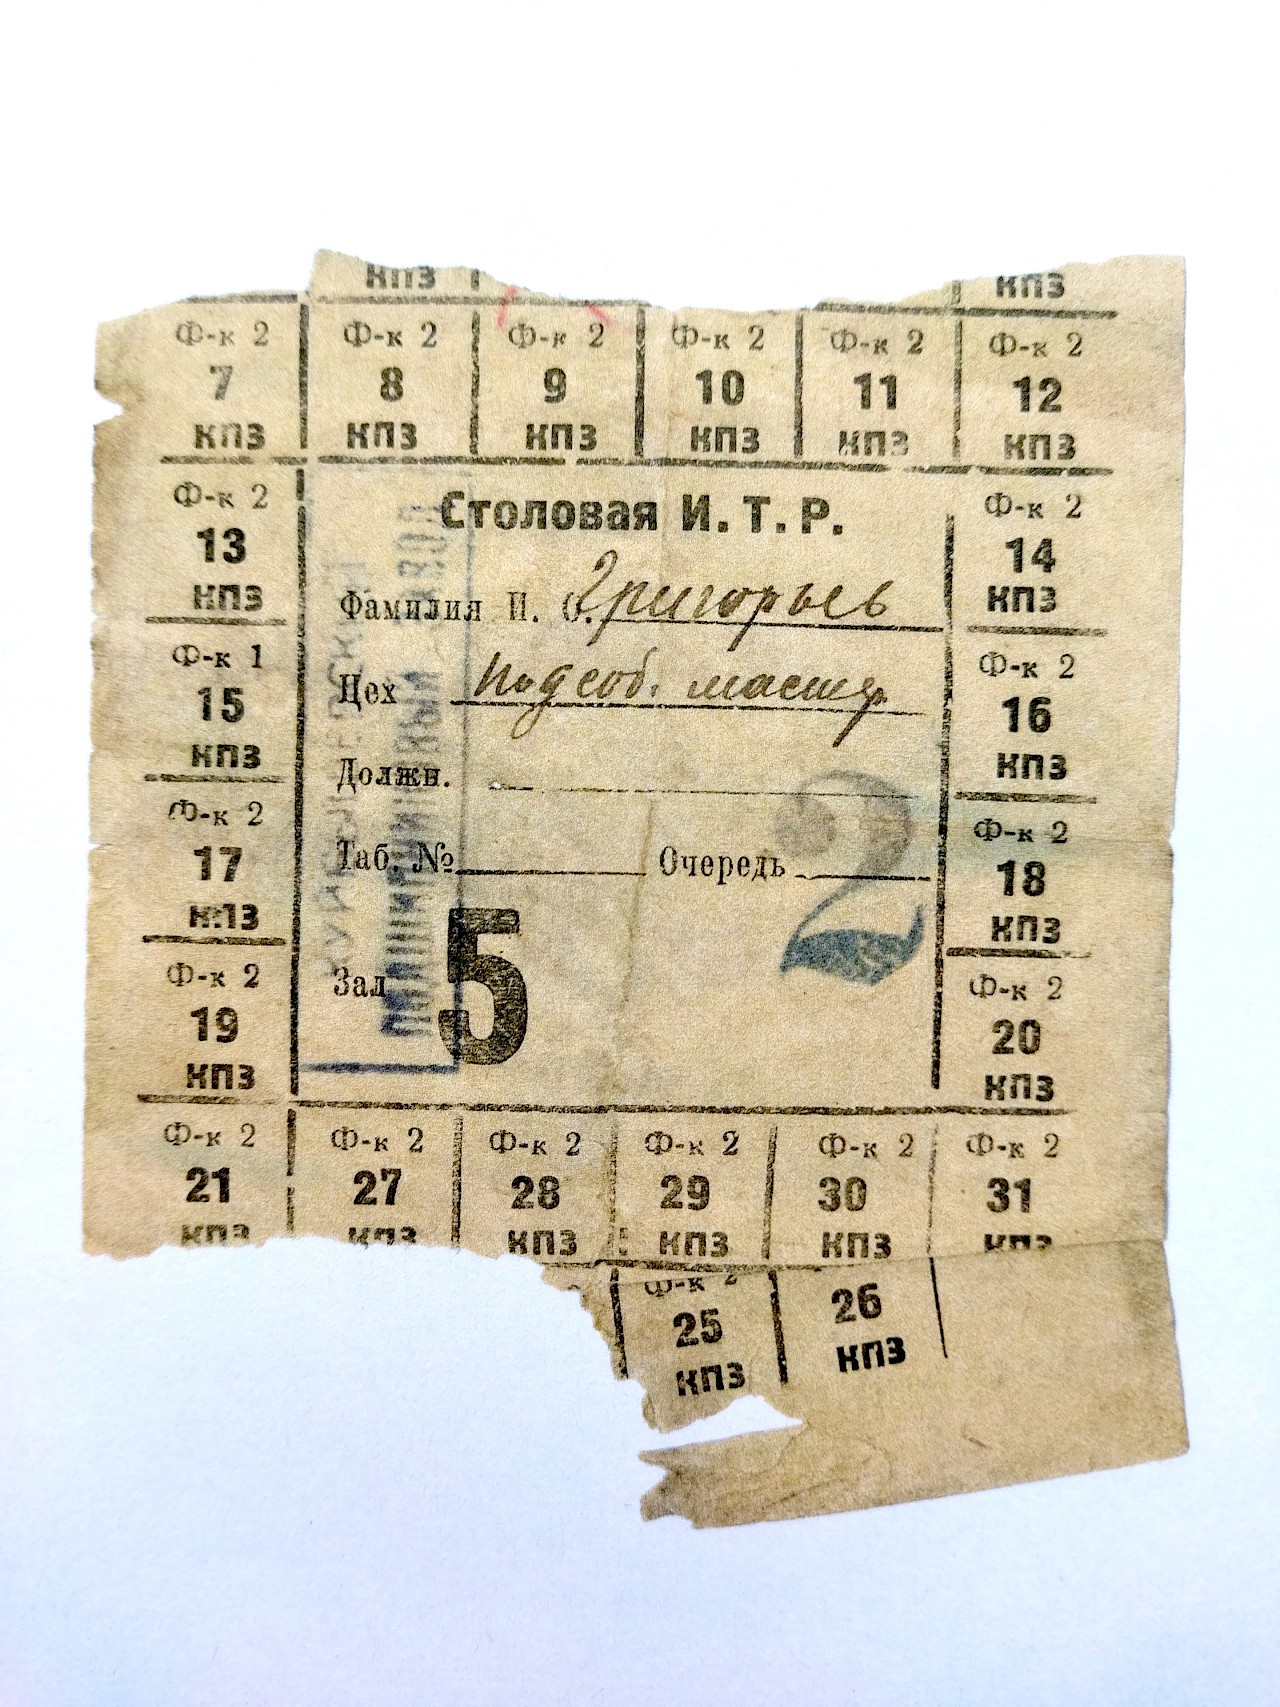 КПЗ КПЗ
Ф-к 2 Ф-к 2 Ф-к 2 Ф-к 2 Ф-к 2 Ф-к 2
7 8 9 10 11 12
КПЗ КПЗ КПЗ КПЗ КПЗ КПЗ
Столовая И. Т. Р.
Фамилия И. О. Григорьев
Цех Подсоб. мастер.
Должн.
Таб. № Очередь 2
Зал 5
Ф-к 2
13
КПЗ
Ф-к 2
14
КПЗ
Ф-к 1
15
КПЗ
Ф-к 2
16
КПЗ
Ф-к 2
17
КПЗ
Ф-к 2
18
КПЗ
Ф-к 2
19
КПЗ
Ф-к 2
20
КПЗ
Ф-к 2 Ф-к 2 Ф-к 2 Ф-к 2 Ф-к 2 Ф-к 2
21 27 28 29 30 31
КПЗ КПЗ КПЗ КПЗ КПЗ КПЗ
Ф-к 2
25 26
КПЗ КПЗ